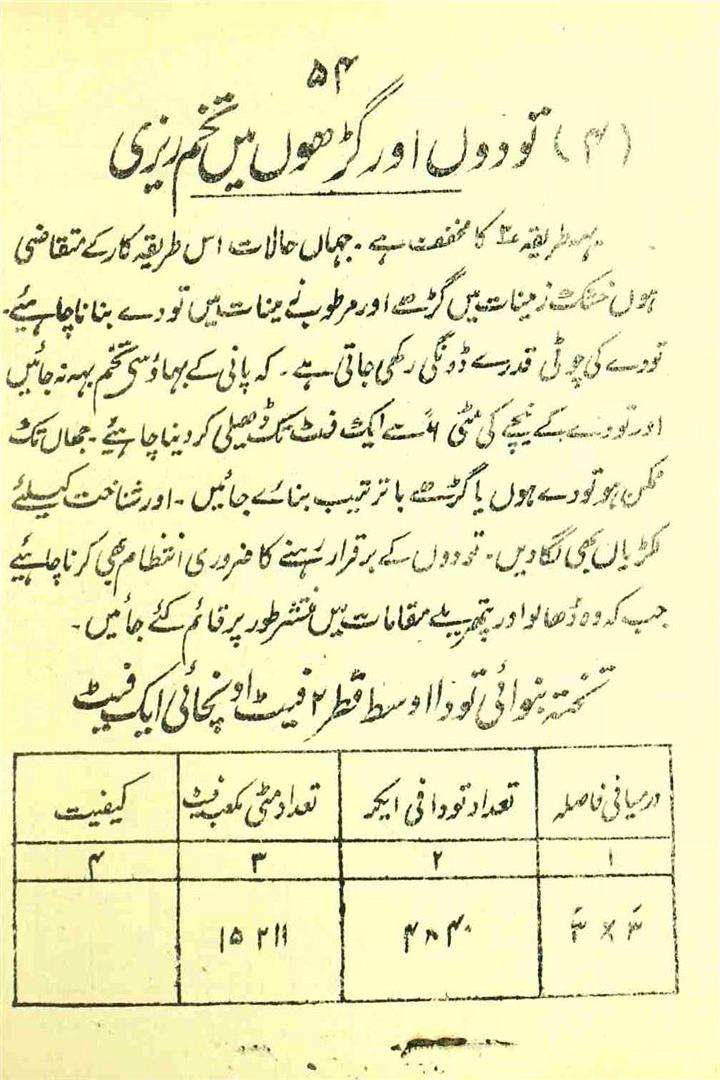 ۵۴
(۴) تودوں اور گڑھوں میں تخم ریزی
یہہ طریقہ ۳ کا مخفف ہے ۔ جہاں حالات اس طریقہ کار کے متقاضی
ہوں خشک زمینات میں گڑھے اور مرطوب زمینات میں تودے بنانا چاہئیے۔
تودے کی چوٹی قدرے ڈونگی رکھی جاتی ہے ۔ کہ پانی کے بہاؤ سی تخم بہہ نہ جائیں
اور تودے کے نیچے کی مٹی ۶ً سے ایک فٹ تک ڈھیلی کر دینا چاہئیے ۔ جہاں تک
ممکن ہو تودے ہوں یا گڑھے باترتیب بنائے جائیں ۔ اور شناخت کیلئے
لکڑیاں بھی لگادیں ۔ تودوں کے برقرار رہنے کا ضروری انتظام بھی کرنا چاہئیے
جب کہ وہ ڈھالو اور پتھریلے مقامات میں منتشر طور پر قائم کئے جائیں ۔
تختہ بنوائی تودا اوسط قطر ۲ فیٹ اونچائی ایک فیٹ
درمیانی فاصلہ تعداد تودا فی ایکر تعداد مٹی مکعب فیٹ کیفیت
۱ ۲ ۳ ۴
۳َ × ۳َ ۴۸۴۰ ۱۵۲۱۱